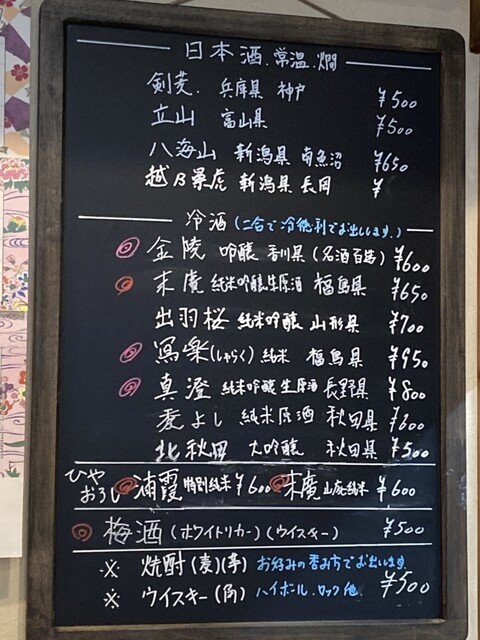 日本酒.常温.燗
剣菱. 兵庫県 神戸 ¥500
立山 富山県 ¥500
八海山 新潟県 南魚沼 ¥650
越乃景虎 新潟県 長岡 ¥
冷酒(二合で冷徳利でお出しします.)
金陵 吟醸 香川県(名酒百選) ¥600
末廣 純米吟醸生原酒 福島県 ¥650
出羽桜 純米吟醸 山形県 ¥700
冩樂(しゃらく)純米 福島県 ¥950
真澄 純米吟醸生原酒 長野県 ¥800
よし 純米原酒 秋田県 ¥600
北秋田 大吟醸 秋田県 ¥500
ひやおろし 浦霞 特別純米 ¥600 末廣 山廃純米 ¥600
梅酒(ホワイトリカー)(ウイスキー) ¥500
※ 焼酎(麦)(芋) お好みの呑み方でお出します.
※ ウイスキー(角) ハイボール.ロック他. ¥500